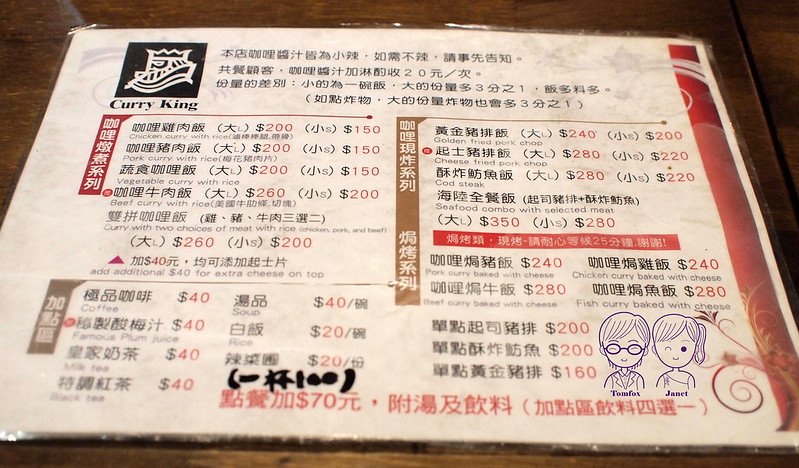 本店咖哩醬汁皆為小辣，如需不辣，請事先告知。
共餐顧客，咖哩醬汁加淋酌收20元／次。
份量的差別：小的為一碗飯，大的份量多3分之1，飯多料多。
（如點炸物，大的份量炸物也會多3分之1）
Curry King
咖哩燉煮系列
咖哩雞肉飯 (大L) $200 (小S) $150
Chicken curry with rice(滷棒棒腿,帶骨)
咖哩豬肉飯 (大L) $200 (小S) $150
Pork curry with rice(梅花豬肉片)
蔬食咖哩飯 (大L) $200 (小S) $150
Vegetable curry with rice
咖哩牛肉飯 (大L) $260 (小S) $200
Beef curry with rice(美國牛肋條,切塊)
雙拼咖哩飯 (雞、豬、牛肉三選二)
Curry with two choices of meat with rice (chicken, pork, and beef)
(大L) $260 (小S) $200
▲ 加$40元，均可添加起士片
add additional $40 for extra cheese on top
咖哩現炸系列
黃金豬排飯 (大L) $240 (小S) $200
Golden fried pork chop
起士豬排飯 (大L) $280 (小S) $220
Cheese fried pork chop
酥炸魴魚飯 (大L) $280 (小S) $220
Cod steak
海陸全餐飯 (起司豬排+酥炸魴魚)
Seafood combo with selected meat
(大L) $350 (小S) $280
焗烤系列
焗烤類，現烤-請耐心等候25分鐘.謝謝!
咖哩焗豬飯 $240
Pork curry baked with cheese
咖哩焗雞飯 $240
Chicken curry baked with cheese
咖哩焗牛飯 $280
Beef curry baked with cheese
咖哩焗魚飯 $280
Fish curry baked with cheese
單點起司豬排 $200
單點酥炸魴魚 $200
單點黃金豬排 $160
加點區
極品咖啡 $40
Coffee
秘製酸梅汁 $40
Famous Plum juice
皇家奶茶 $40
Milk tea
特調紅茶 $40
Black tea
湯品 $40/碗
Soup
白飯 $20/碗
Rice
辣菜圃 $20/份
(一杯100)
點餐加$70元，附湯及飲料（加點區飲料四選一）
Tomfox
Janet